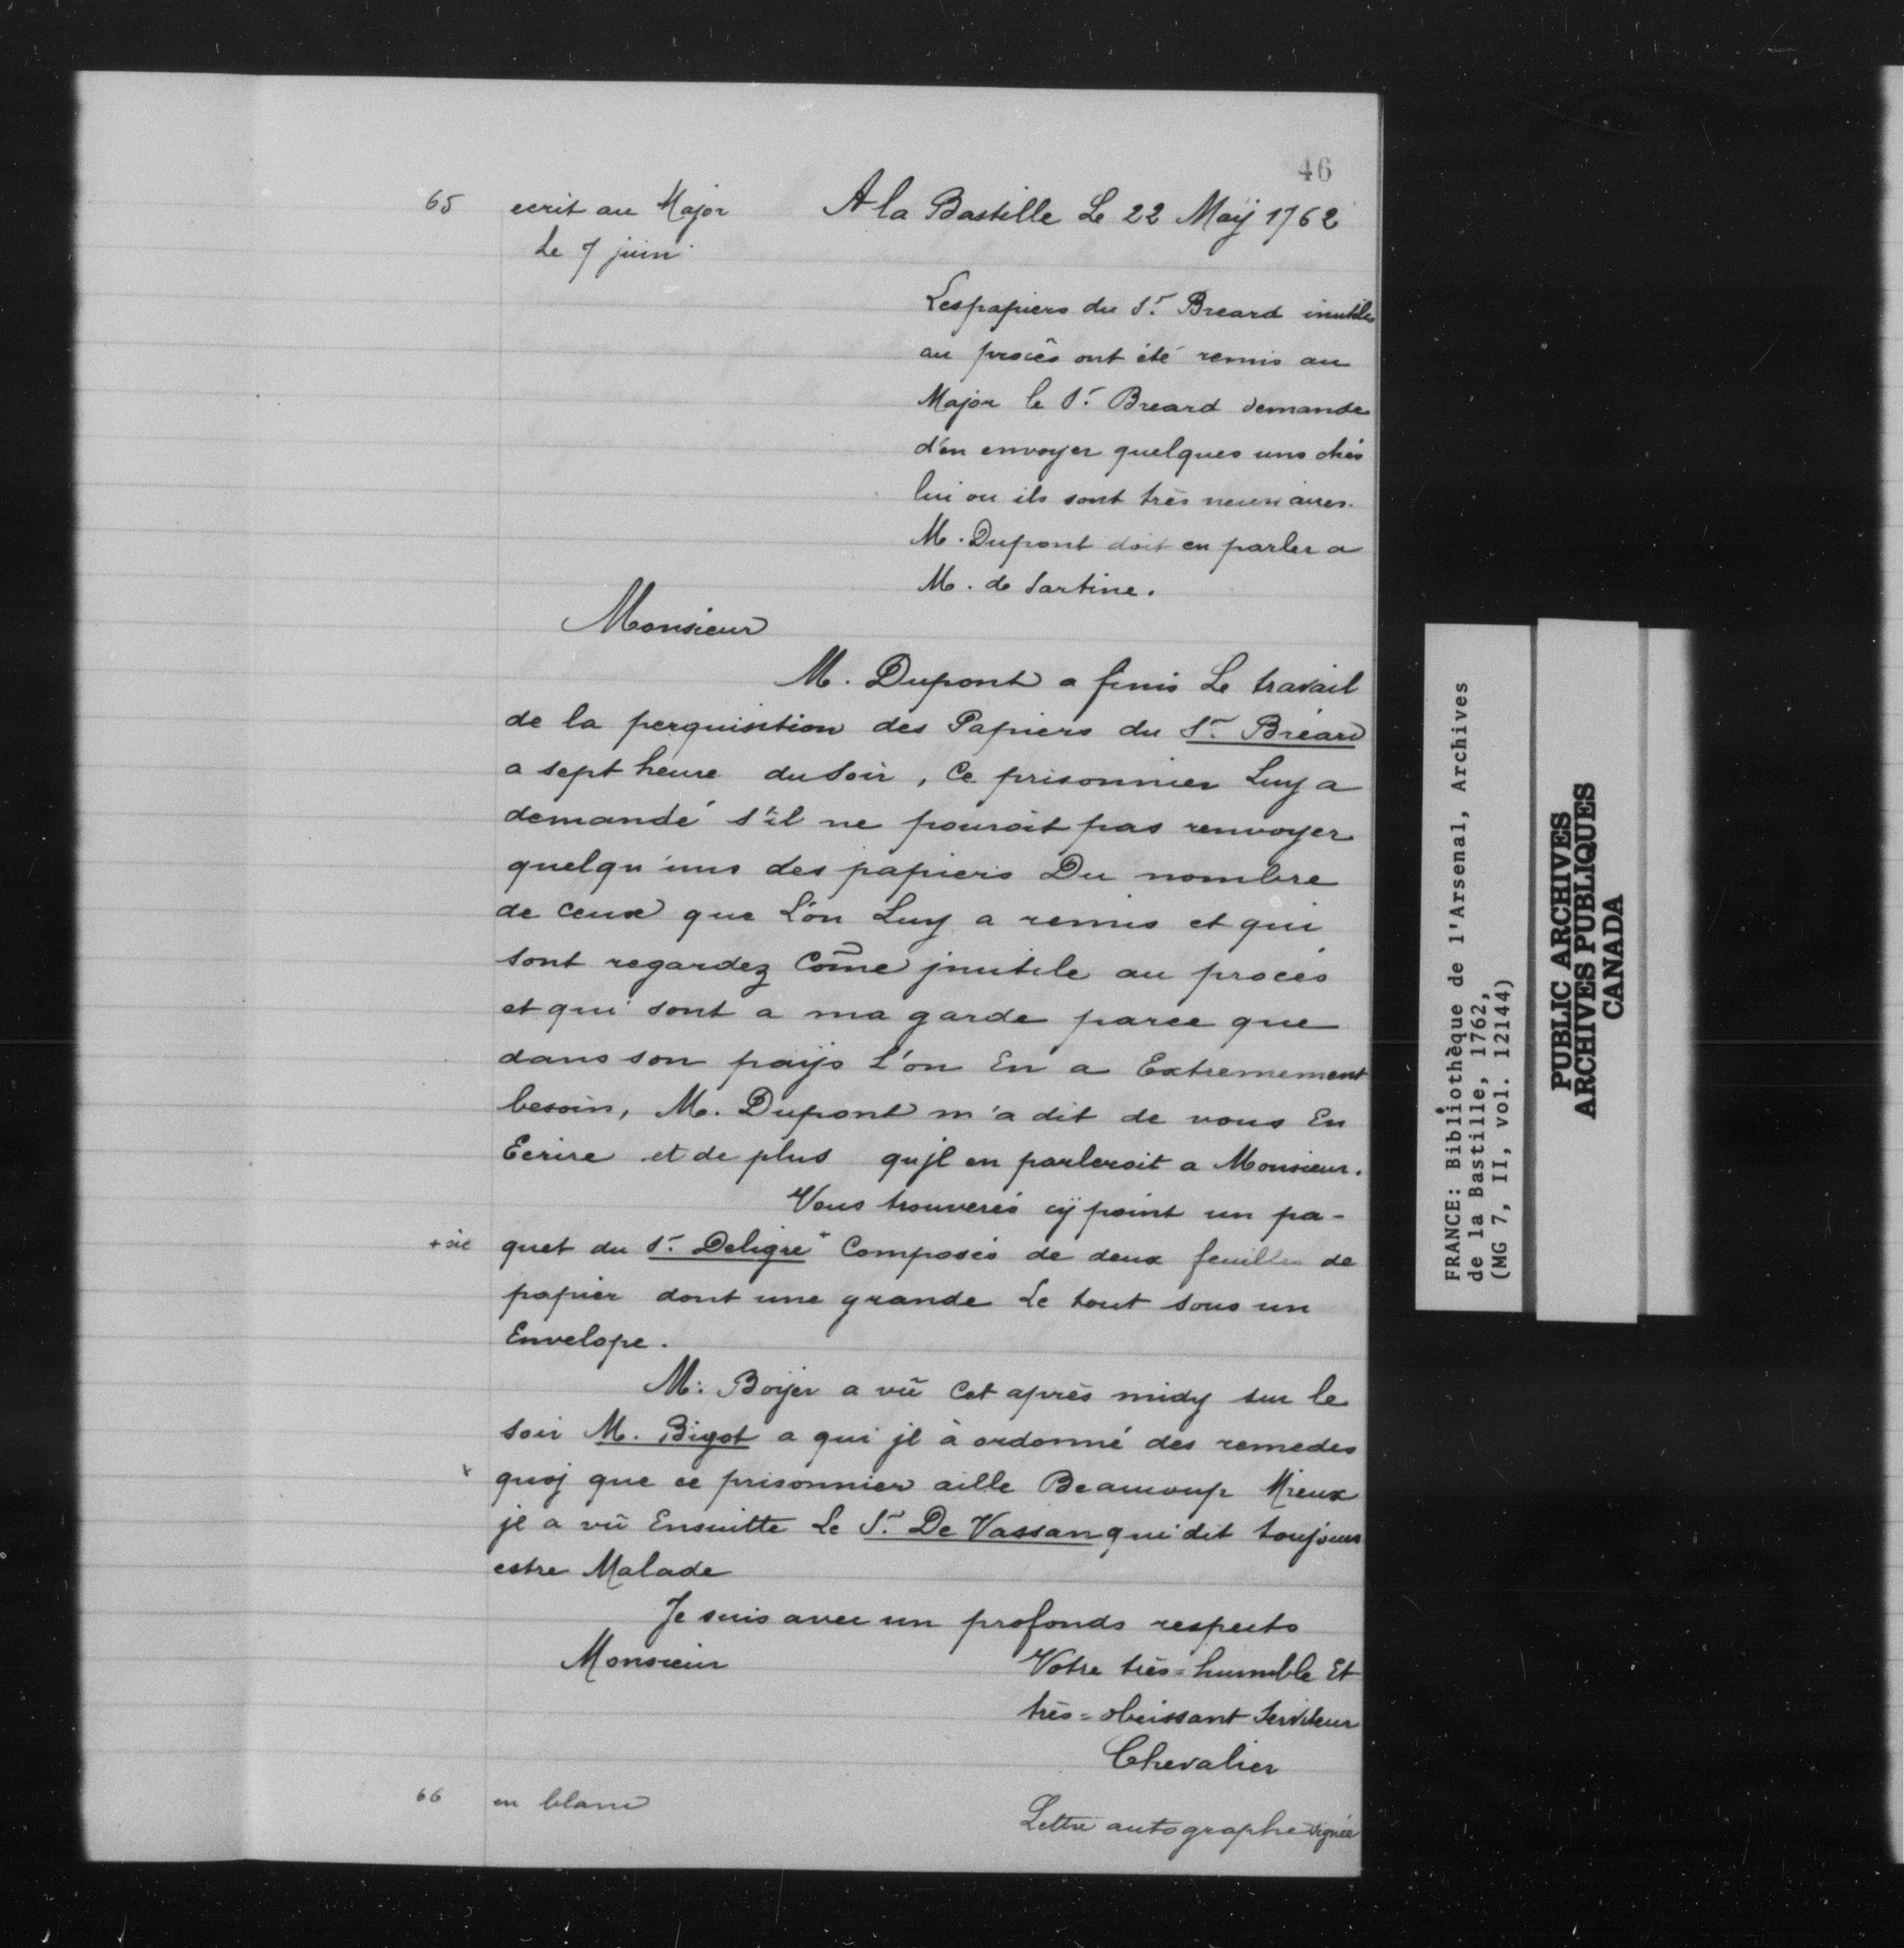 46
65 ecrit au Major
Le 7 juin
A la Bastille Le 22 Maÿ 1762
Les papiers du Sr. Breard inutiles
au procês ont été remis au
Major le Sr. Breard demande
d'en envoyer quelques uns chés
lui ou ils sont très necessaires.
M. Dupont doit en parler a
M. de Sartine.
Monsieur
M. Dupont a finis Le travail
de la perquisition des Papiers du Sr. Bréard
a sept heure du Soir, Ce prisonnier Luy a
demandé s'il ne pouroit pas renvoyer
quelqu'uns des papiers Du nombre
de ceux que L'on Luy a remis et qui
sont regardez Com̃e jnutile au procés
et qui sont a ma garde parce que
dans son païjs L'on En a Extremement
besoin, M. Dupont m'a dit de vous En
Ecrire et de plus qujl en parleroit a Monsieur.
Vous trouverés cÿ point un pa-
+ sic quet du Sr. Deligre + Composés de deux feuilles de
papier dont une grande Le tout sous un
Envelope.
M: Boyer a vû Cet après midy sur le
soir M. Bigot a qui jl à ordonné des remedes
x quoj que ce prisonnier aille Beaucoup Mieux
jl a vû Ensuitte Le Sr. De Vassan qui dit toujours
estre Malade
Je suis avec un profonds respects
Monsieur
Votre très=humble Et
très=obeissant Serviteur
Chevalier
66 en blanc
Lettre autographe signée
FRANCE: Bibliothèque de l'Arsenal, Archives
de la Bastille, 1762,
(MG 7, II, vol. 12144)
PUBLIC ARCHIVES
ARCHIVES PUBLIQUES
CANADA